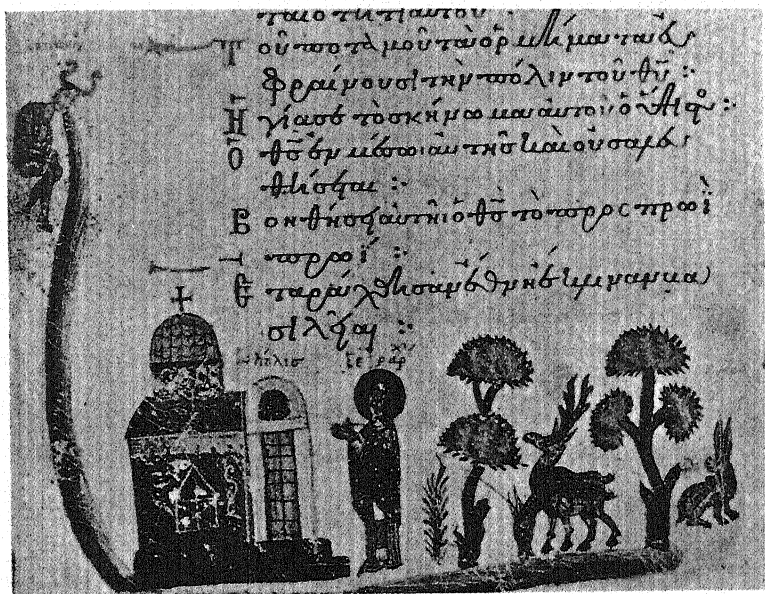 ταιότητι αὐτοῦ ·
Τοῦ ποταμοῦ τὰ ὁρμήματα εὐ
φραίνουσι τὴν πόλιν τοῦ θῦ :·
Ἡγίασε τὸ σκήνωμα αὐτοῦ ὁ :·
Ὁ θς ἐν μέσωι αὐτῆς καὶ οὐ σαλευ
θήσεται :·
Βοηθήσει αὐτῆι ὁ θς τὸ πρὸς πρωῒ
πρωΐ :·
Ἐταράχθησαν ἔθνη ἔκλιναν βα
σιλεῖαι :·
ἡ πόλις